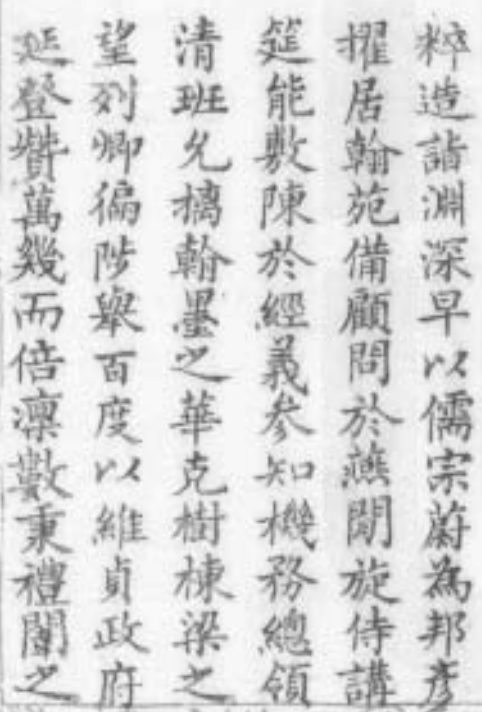 粹造詣淵深早以儒宗蔚為邦彥
擢居翰苑備顧問於燕閒旋侍講
筵能敷陳於經義参知機務總領
清班允摛翰墨之華克樹棟梁之
望列卿偏陟舉百度以維貞政府
延登贊萬幾而倍凛數秉禮闈之